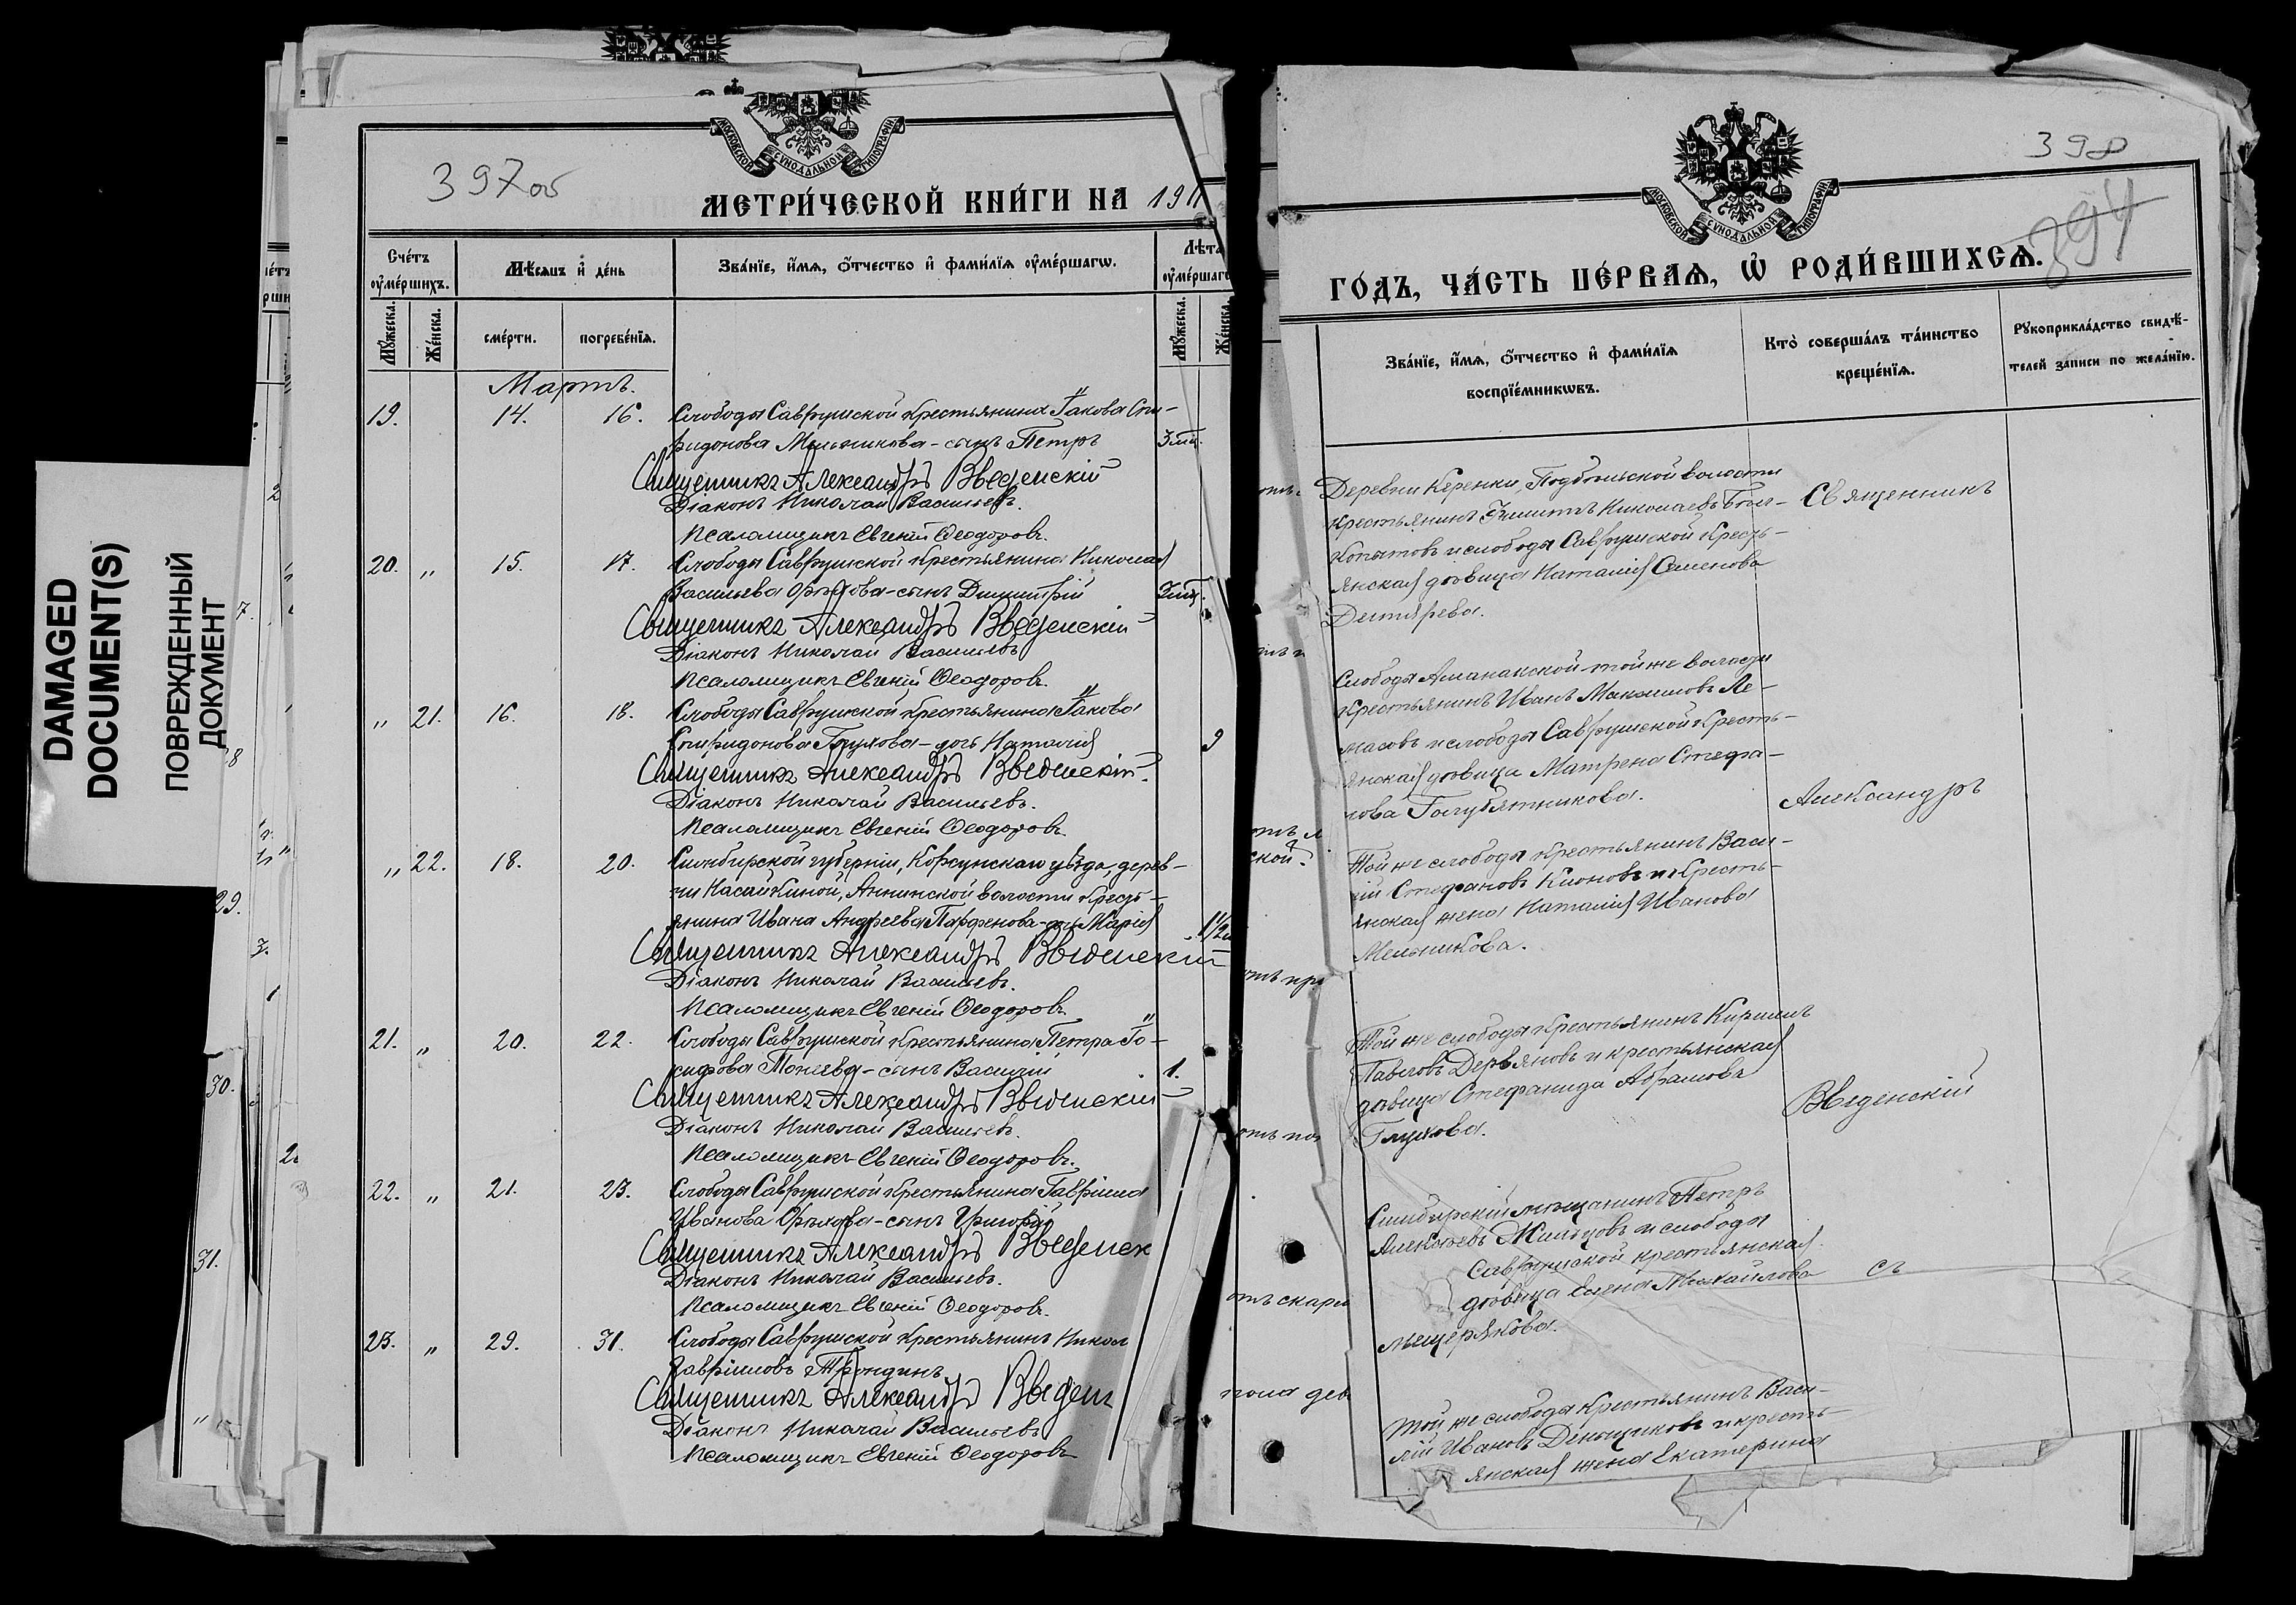 DAMAGED
DOCUMENT(S)
ПОВРЕЖДЕННЫЙ
ДОКУМЕНТ
МОСКОВСКОЙ СѴНОДАЛЬНОЙ ТИПОГРАФІИ
397об
МЕТРИ́ЧЕСКОЙ КНИ́ГИ НА 191
Сче́тъ оу҆ме́ршихъ.
Мѣ́сяцъ и҆ де́нь
Зва́нїе, и҆́мѧ, ѻ҆́тчество и҆ фами́лїѧ оу҆ме́ршагѡ.
Лѣта
оу҆ме́ршаг
Му́жеска.
Же́нска.
сме́рти.
погребе́нїѧ.
Му́жеска.
Же́нска.
Мартъ.
19. 14. 16. Слободы Саврушской крестьянина Іакова Спи-
ридонова Мельникова - сынъ Петръ 3 мѣ.
Священникъ Александръ Введенскій
Діаконъ Николай Васильевъ.
Псаломщикъ Евгеній Ѳеодоровъ.
20. „ 15. 17. Слободы Саврушской крестьянина Николая
Васильева Орѣхова - сынъ Димитрій
Священникъ Александръ Введенскій
Діаконъ Николай Васильевъ
Псаломщикъ Евгеній Ѳеодоровъ.
„ 21. 16. 18. Слободы Саврушской крестьянина Іакова
Спиридонова Глухова - дочь Наталія 9
Священникъ Александръ Введенскій.
Діаконъ Николай Васильевъ.
Псаломщикъ Евгеній Ѳеодоровъ.
„ 22. 18. 20. Симбирской губерніи, Корсунскаго уѣзда, дерев-
ни Насайкиной, Аннинской волости кресть-
янина Ивана Андреева Парфенова - дочь Марія 1 1/2
Священникъ Александръ Введенскій
Діаконъ Николай Васильевъ.
Псаломщикъ Евгеній Ѳеодоровъ.
21. „ 20. 22. Слободы Саврушской крестьянина Петра Іо-
сифова - сынъ Василій 1.
Священникъ Александръ Введенскій
Діаконъ Николай Васильевъ.
Псаломщикъ Евгеній Ѳеодоровъ.
22. „ 21. 23. Слободы Саврушской крестьянина Гавріила
Иванова Орѣхова - сынъ Григорій
Священникъ Александръ Введенск
Діаконъ Николай Васильевъ.
Псаломщикъ Евгеній Ѳеодоровъ.
23. „ 29. 31. Слободы Саврушской крестьянинъ Никол
Гавріиловъ Трондинъ
Священникъ Александръ Введен
Діаконъ Николай Васильевъ
Псаломщикъ Евгеній Ѳеодоровъ
МОСКОВСКОЙ СѴНОДАЛЬНОЙ ТИПОГРАФІИ
398
394
ГО́ДЪ, ЧА́СТЬ ПЕ́РВАѦ, Ѡ҆ РОДИ́ВШИХСѦ.
Зва́нїе, и҆́мѧ, ѻ҆́тчество и҆ фами́лїѧ
воспрїе́мникѡвъ.
Кто̀ соверша́лъ та́инство
креще́нїѧ.
Рꙋкоприкла́дство свидѣ́-
телей записи по жела́нїю.
Деревни Керенки, Подбѣльской волости
крестьянинъ Николаевъ Бѣл-
Копытовъ и слободы Саврушской кресть-
янская дѣвица Наталія Семенова
Дегтярева.
Священникъ
Слободы Аманакской той же волости
крестьянинъ Иванъ Максимовъ Ле-
масовъ и слободы Саврушской кресть-
янская дѣвица Матрена Стефа-
нова Голубятникова.
Александръ
Той же слободы крестьянинъ Васи-
лій Стефановъ Клоновъ и кресть-
янская жена Наталія Иванова
Мельникова.
Той же слободы крестьянинъ Кириллъ
Павловъ Деревяновъ и крестьянская
дѣвица Стефанида Абрамова
Глухова.
Введенскій
Симбирскій мѣщанинъ Петръ
Алексѣевъ Жильцовъ и слободы
Саврушской крестьянская
дѣвица Елена Михайлова
Мещерякова.
съ
Той же слободы крестьянинъ Васи-
лій Ивановъ Деньщиковъ и кресть-
янская жена Екатерина